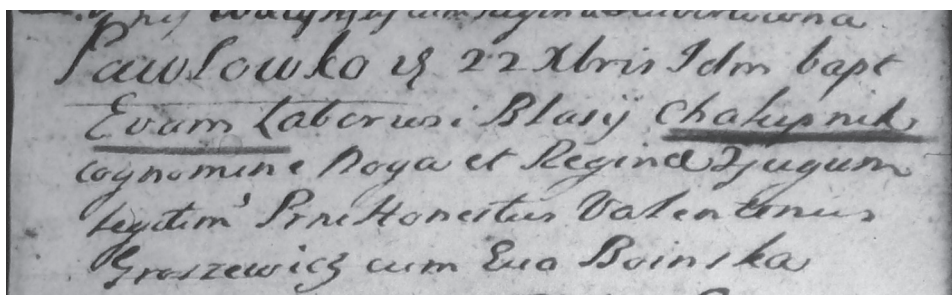 cum Regina
Pawlowko ej 22 Xbris Idm bapt
Evam Laboriosi Blasij Chalupnik
cognomine Noga et Regina Conjugum
legitim Ptrni Honestus Valentinus
Groszewicz cum Eva Boinska